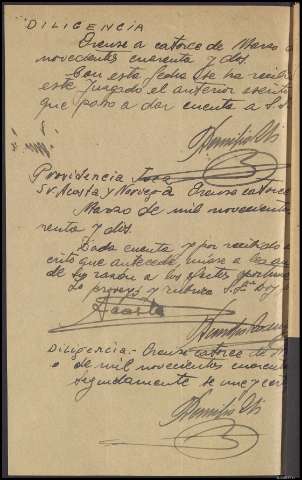 DILIGENCIA
Orense a catorce de Marzo d
novecientos cuarenta y dos.
Con esta fecha se ha recib
este Juzgado el anterior escrito
que paso a dar cuenta a S.S.
Providencia Juez
Sr Acosta y Noriega Orense catorce
Marzo de mil novecientos
renta y dos.
Dada cuenta y por recibido e
crito que antecede unase a
de su razón a los efectos oportuno
Lo proveyó y rubrica S.Sª Doy
Acosta
Diligencia.- Orense catorce de M
o de mil novecientos cuarent
Seguidamente se une y cert